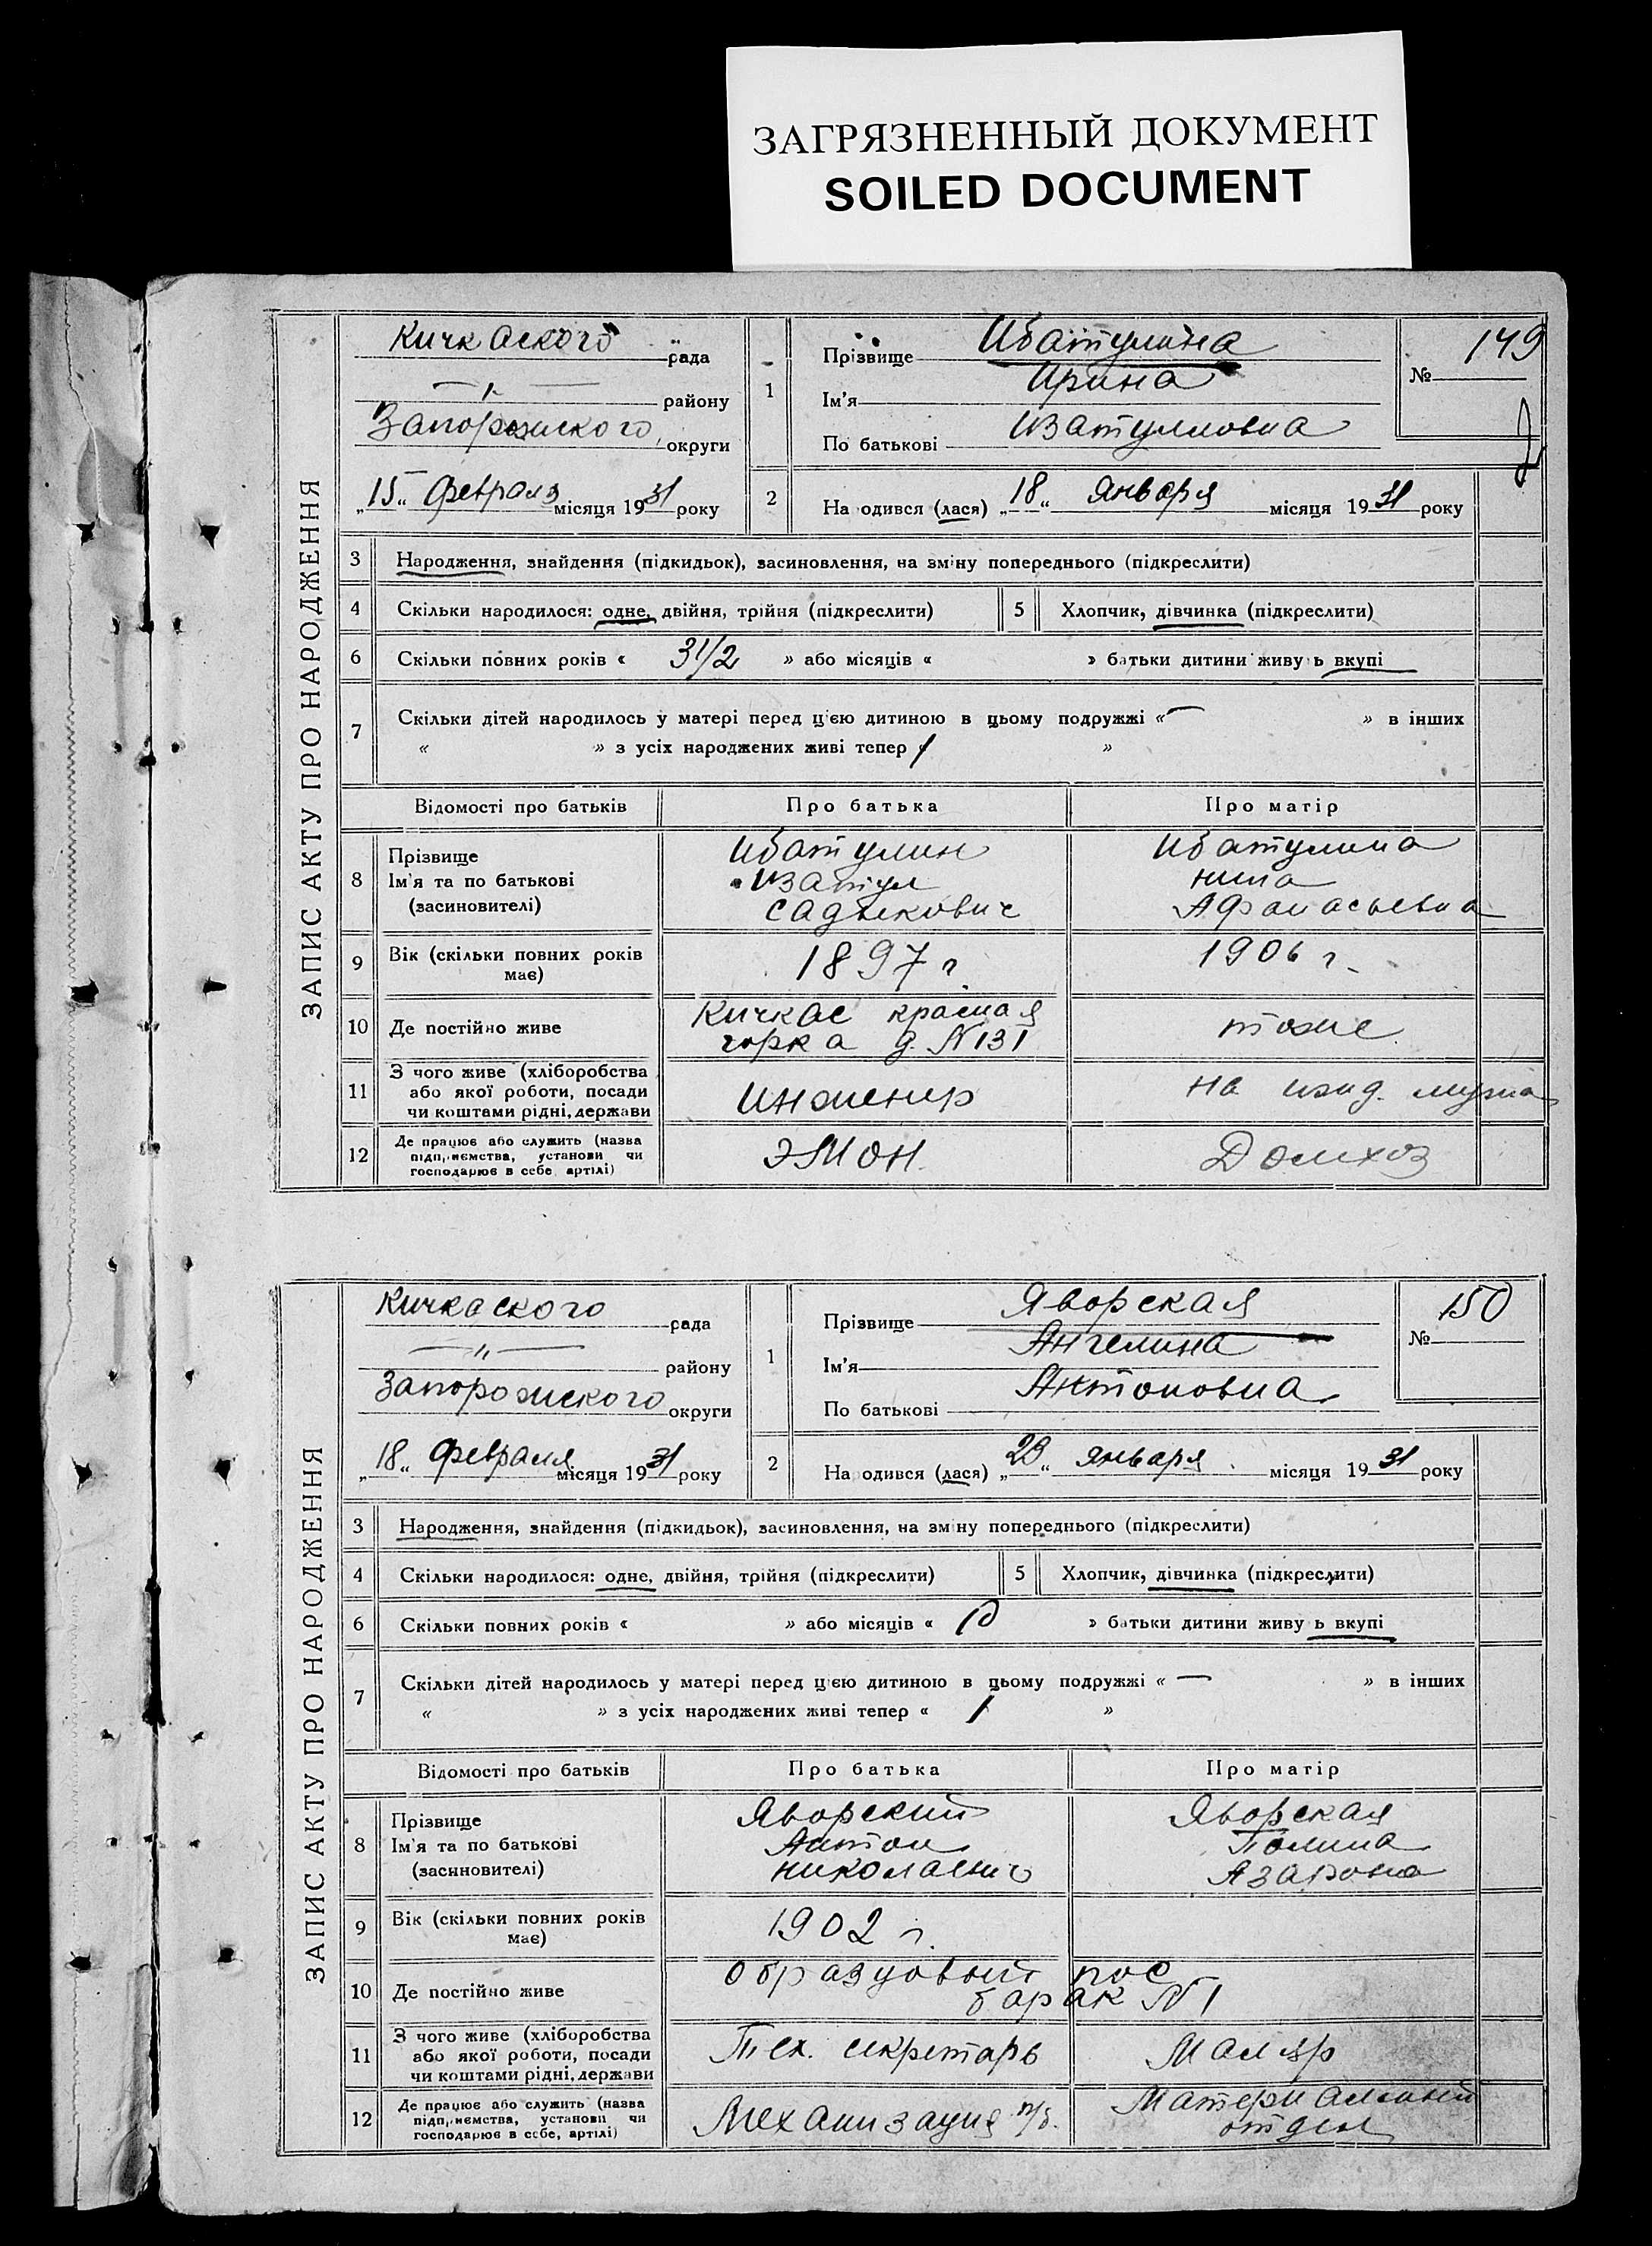 ЗАГРЯЗНЕННЫЙ ДОКУМЕНТ
SOILED DOCUMENT
ЗАПИС АКТУ ПРО НАРОДЖЕННЯ
Кичкаского рада
—„— району
Запорожского округи
„15“ Февраля місяця 1931 року
1
Прізвище Ибатулина
Ім'я Ирина
По батькові Изатулловна
№ 149
2
На одився (лася) „18“ Января місяця 1931 року
3 Народження, знайдення (підкидьок), засиновлення, на зміну попереднього (підкреслити)
4 Скільки народилося: одне, двійня, трійня (підкреслити) 5 Хлопчик, дівчинка (підкреслити)
6 Скільки повних років « 3 1/2 » або місяців « » батьки дитини живу ь вкупі
7 Скільки дітей народилось у матері перед цією дитиною в цьому подружжі « — » в інших
« » з усіх народжених живі тепер « 1 »
Відомості про батьків Про батька Про матір
8 Прізвище Ім'я та по батькові (засиновителі)
Ибатулин Изатул Садыкович
Ибатулина Нина Афанасьевна
9 Вік (скільки повних років має) 1897 г 1906 г.
10 Де постійно живе
Кичкас красная горка д. №131
тоже
11 З чого живе (хліборобства або якої роботи, посади чи коштами рідні, держави
Инженер
На ижд. мужа
12 Де працює або служить (назва підприємства, установи чи господарює в себе, артілі)
ЭМОН.
Домхоз
ЗАПИС АКТУ ПРО НАРОДЖЕННЯ
Кичкаского рада
—„— району
Запорожского округи
„18“ Февраля місяця 1931 року
1
Прізвище Яворская
Ім'я Ангелина
По батькові Антоновна
№ 150
2
На одився (лася) „29“ января місяця 1931 року
3 Народження, знайдення (підкидьок), засиновлення, на зміну попереднього (підкреслити)
4 Скільки народилося: одне, двійня, трійня (підкреслити) 5 Хлопчик, дівчинка (підкреслити)
6 Скільки повних років « » або місяців « 10 » батьки дитини живу ь вкупі
7 Скільки дітей народилось у матері перед цією дитиною в цьому подружжі « — » в інших
« » з усіх народжених живі тепер « 1 »
Відомості про батьків Про батька Про матір
8 Прізвище Ім'я та по батькові (засиновителі)
Яворский Антон Николаевич
Яворская Полина Азаровна
9 Вік (скільки повних років має) 1902 г.
10 Де постійно живе
образцовый пос
барак №1
11 З чого живе (хліборобства або якої роботи, посади чи коштами рідні, держави
Тех. секретарь
Маляр
12 Де працює або служить (назва підприємства, установи чи господарює в себе, артілі)
Механизация п/б.
Материальный отдел